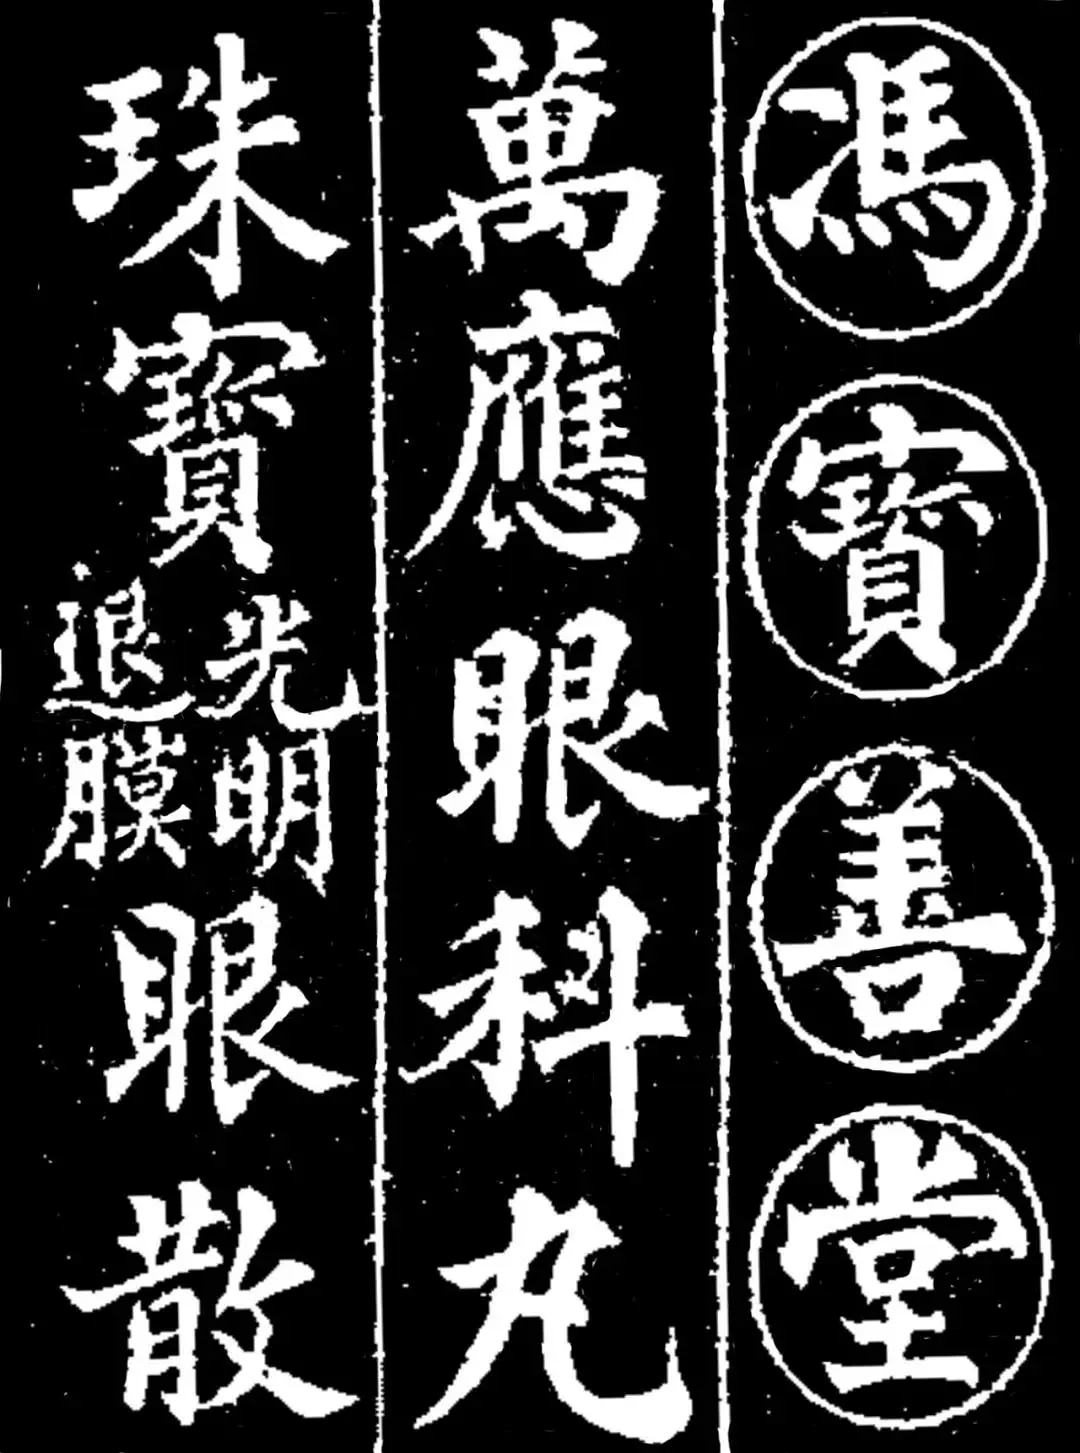 馮寶善堂
萬應眼科丸
珠寶光明退膜眼散